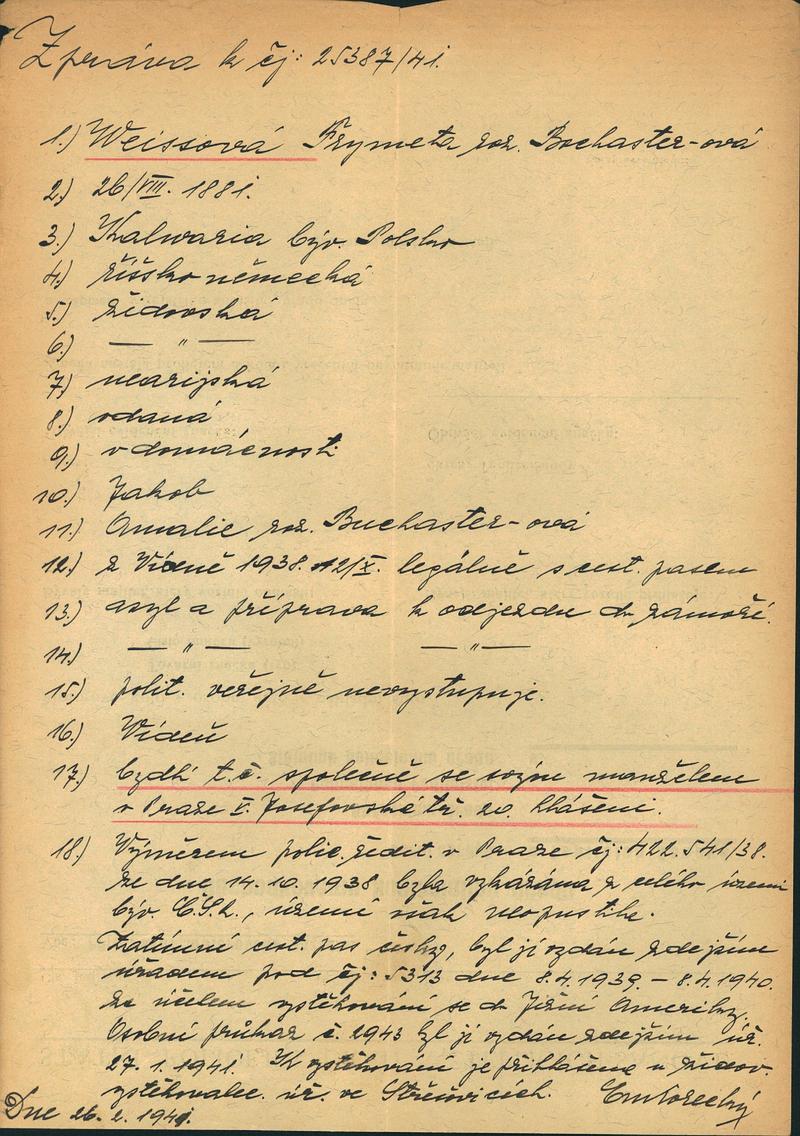 Zpráva k čj: 25387/41.
1.) Weissová Frymeta roz. Bochaster-ová
2.) 26/VIII. 1881.
3.) Kalwaria býv. Polsko
4.) říšsko německá
5.) židovská
6.) — " —
7.) nearijská
8.) vdaná
9.) v domácnosti
10.) Jakob
11.) Amalie roz. Buchaster-ová
12.) z Vídně 1938. 12/X. legálně s cest. pasem
13.) asyl a příprava k odjezdu do zámoří.
14.) — " — — " —
15.) polit. veřejně nevystupuje.
16.) Vídeň
17.) bydlí t.č. společně se svým manželem
v Praze V. Josefovská tř. 20. hlášeni.
18.) Výměrem polic. ředit. v Praze čj: 422.541/38.
ze dne 14.10.1938 byla vykázána z celého území
býv. Č.S.R., území však neopustila.
Zatímní cest. pas český, byl jí vydán zdejším
úřadem pod čj: 5313 dne 8.4.1939. – 8.4.1940.
za účelem vystěhování se do Jižní Ameriky.
Osobní průkaz č. 2943 byl jí vydán zdejším úř.
27.1.1941. K vystěhování je přihlášena u židov.
vystěhovalec. úř. ve Střešovicích.
Dne 26.2.1941.